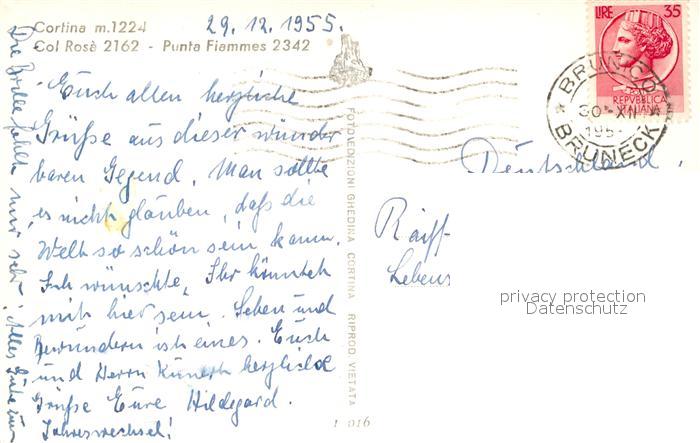 Cortina m.1224
Col Rosè 2162 - Punta Fiammes 2342
29.12.1955.
Euch allen herzliche
Grüße aus dieser wunder
baren Gegend. Man sollte
es nicht glauben, daß die
Welt so schön sein kann.
Ich wünschte, Ihr könntet
mit hier sein. Sehen und
Bewundern ist eines. Euch
und Herrn herzliche
Grüße Eure Hildegard.
Jahreswechsel!
Die Brille fehlt mir sehr! Alles Gute zum
FOTOEDIZIONI GHEDINA CORTINA RIPROD VIETATA
1 016
LIRE 35
REPVBBLICA
ITALIANA
BRUNICO
30 XII
195
BRUNECK
Deutschland
Raiff
Lebens
privacy protection
Datenschutz